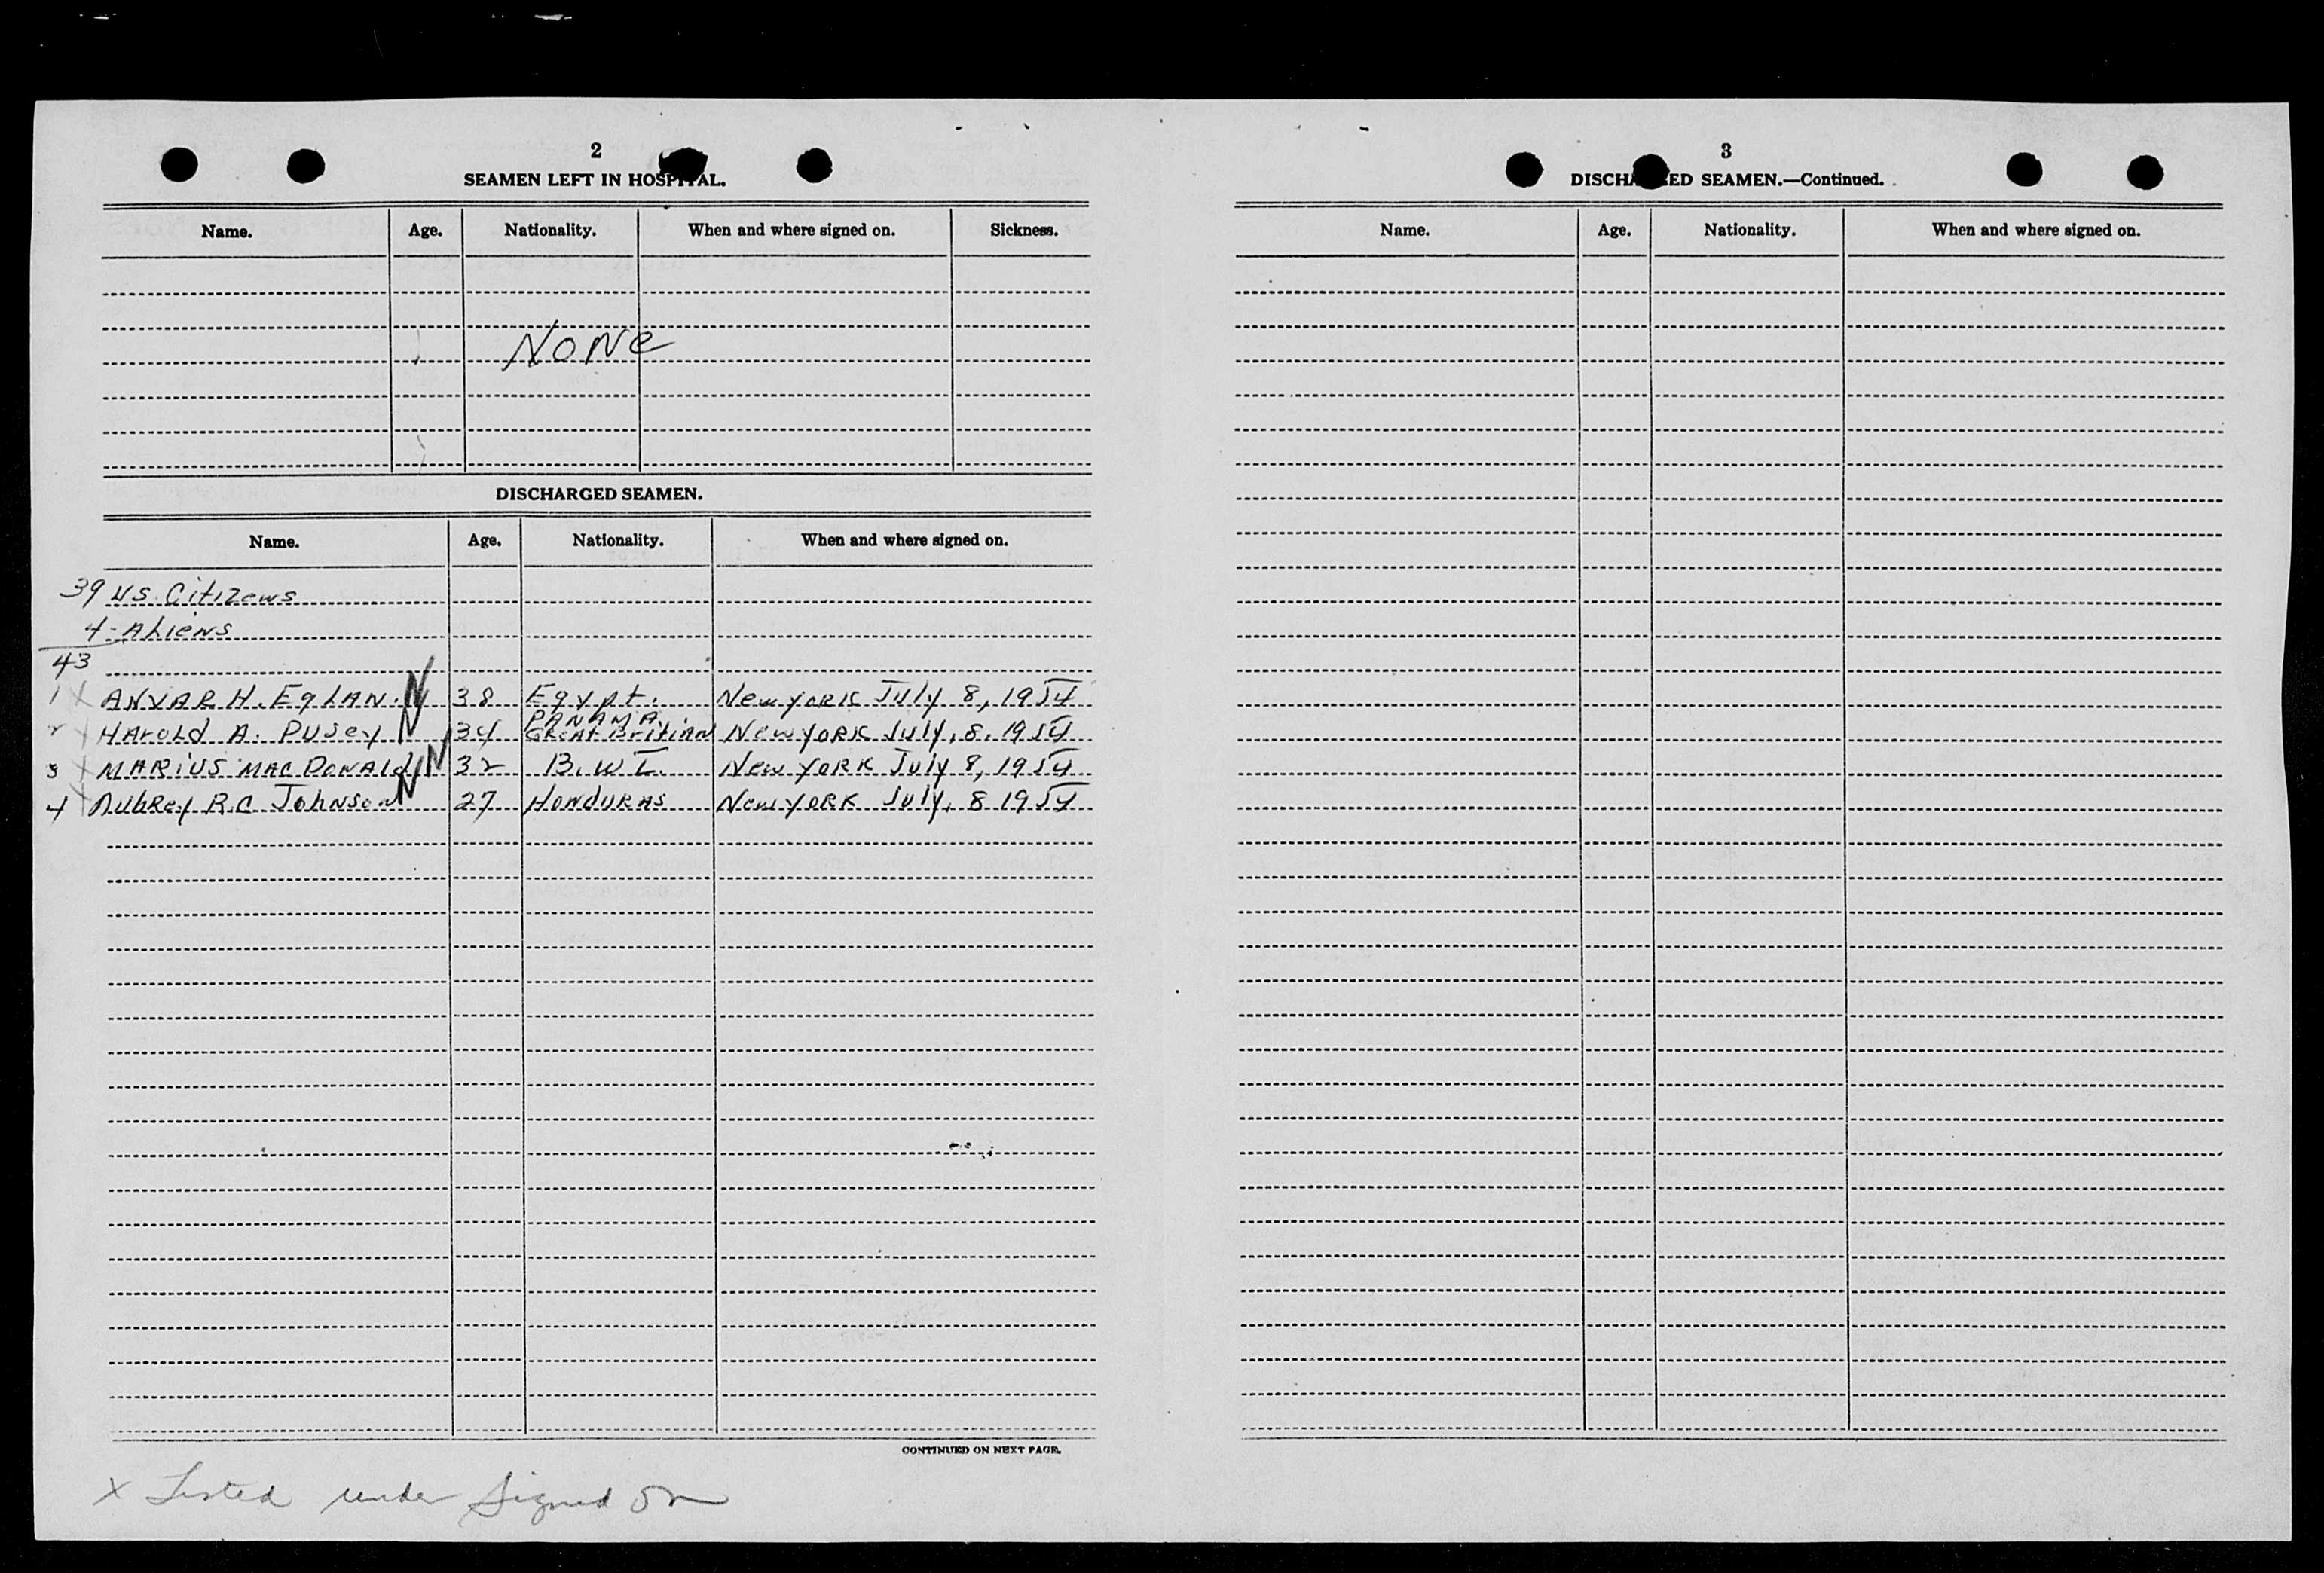 2
SEAMEN LEFT IN HOSPITAL.
Name. Age. Nationality. When and where signed on. Sickness.
NoNe
DISCHARGED SEAMEN.
Name. Age. Nationality. When and where signed on.
39 US. Citizens
4-Aliens
43
1 X ANVAR H. EgLAN. N 38 Egypt. New york July 8, 1954
PANAMA.
2 X HAroLd A. PUSey N 34 Great Britian New york July, 8. 1954
3 X MARiUS MAC DoNALd N 32 B. W I. New York July 8, 1954
4 X AUbRey R.C JohNsoN N 27 HoNdURAS New york July, 8 1954
CONTINUED ON NEXT PAGE.
X Listed under signed on
3
DISCHARGED SEAMEN.—Continued.
Name. Age. Nationality. When and where signed on.